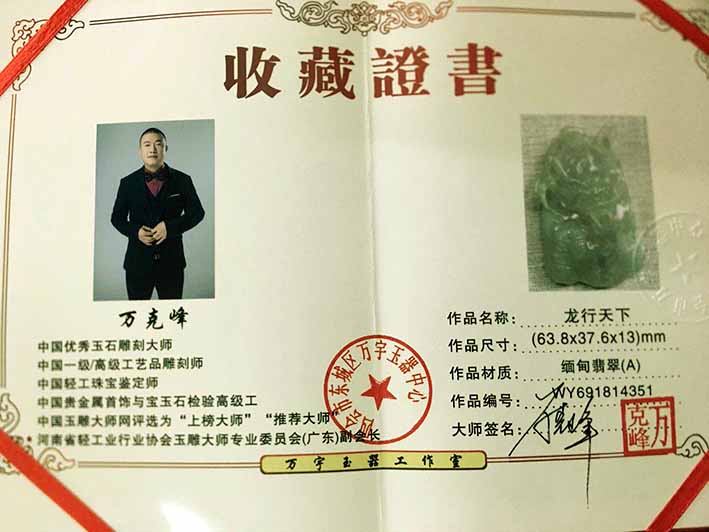 收藏證書
万克峰
中国优秀玉石雕刻大师
中国一级/高级工艺品雕刻师
中国轻工珠宝鉴定师
中国贵金属首饰与宝玉石检验高级工
中国玉雕大师网评选为“上榜大师” “推荐大师”
河南省轻工业行业协会玉雕大师专业委员会(广东)副会长
四会市东城区万宇玉器中心
作品名称： 龙行天下
作品尺寸： (63.8x37.6x13)mm
作品材质： 缅甸翡翠(A)
作品编号： WY691814351
大师签名：
万克峰
万宇玉器工作室